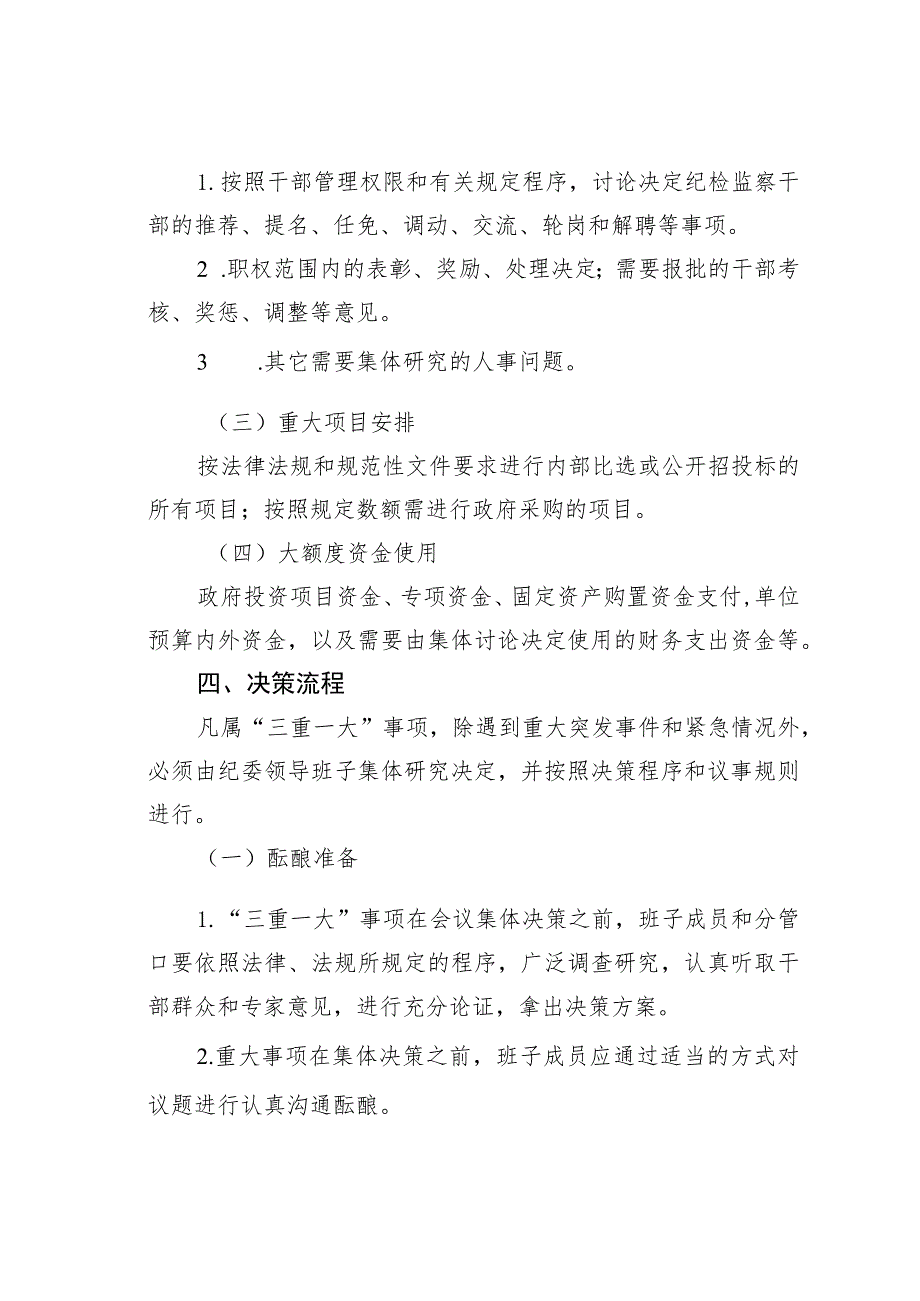 1.按照干部管理权限和有关规定程序，讨论决定纪检监察干
部的推荐、提名、任免、调动、交流、轮岗和解聘等事项。
2 .职权范围内的表彰、奖励、处理决定；需要报批的干部考
核、奖惩、调整等意见。
3 .其它需要集体研究的人事问题。
（三）重大项目安排
按法律法规和规范性文件要求进行内部比选或公开招投标的
所有项目；按照规定数额需进行政府采购的项目。
（四）大额度资金使用
政府投资项目资金、专项资金、固定资产购置资金支付,单位
预算内外资金，以及需要由集体讨论决定使用的财务支出资金等。
四、决策流程
凡属“三重一大”事项，除遇到重大突发事件和紧急情况外，
必须由纪委领导班子集体研究决定，并按照决策程序和议事规则
进行。
（一）酝酿准备
1.“三重一大”事项在会议集体决策之前，班子成员和分管
口要依照法律、法规所规定的程序，广泛调查研究，认真听取干
部群众和专家意见，进行充分论证，拿出决策方案。
2.重大事项在集体决策之前，班子成员应通过适当的方式对
议题进行认真沟通酝酿。